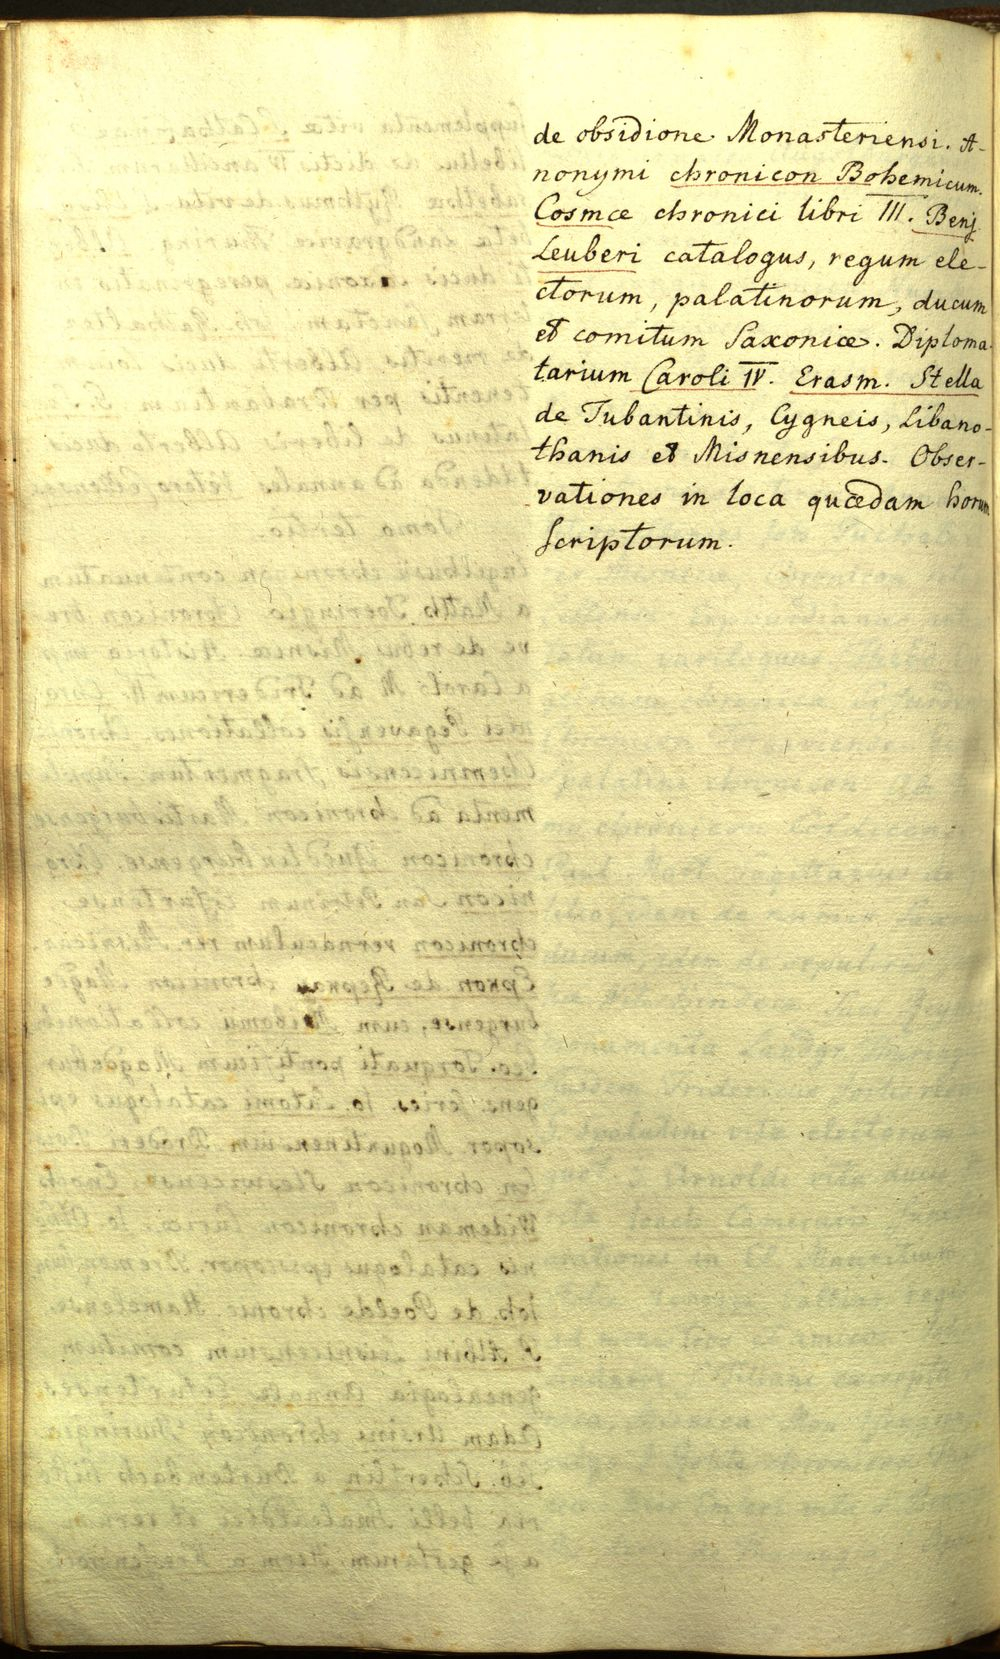 de obsidione Monasteriensi. A-
nonymi chronicon Bohemicum.
Cosmæ chronici libri III. Benj.
Leuberi catalogus, regum ele-
ctorum, palatinorum, ducum
et comitum Saxoniæ. Diploma-
tarium Caroli IV. Erasm. Stella
de Tubantinis, Cygneis, Libano-
thanis et Misnensibus. Obser-
vationes in loca quædam horum
scriptorum.